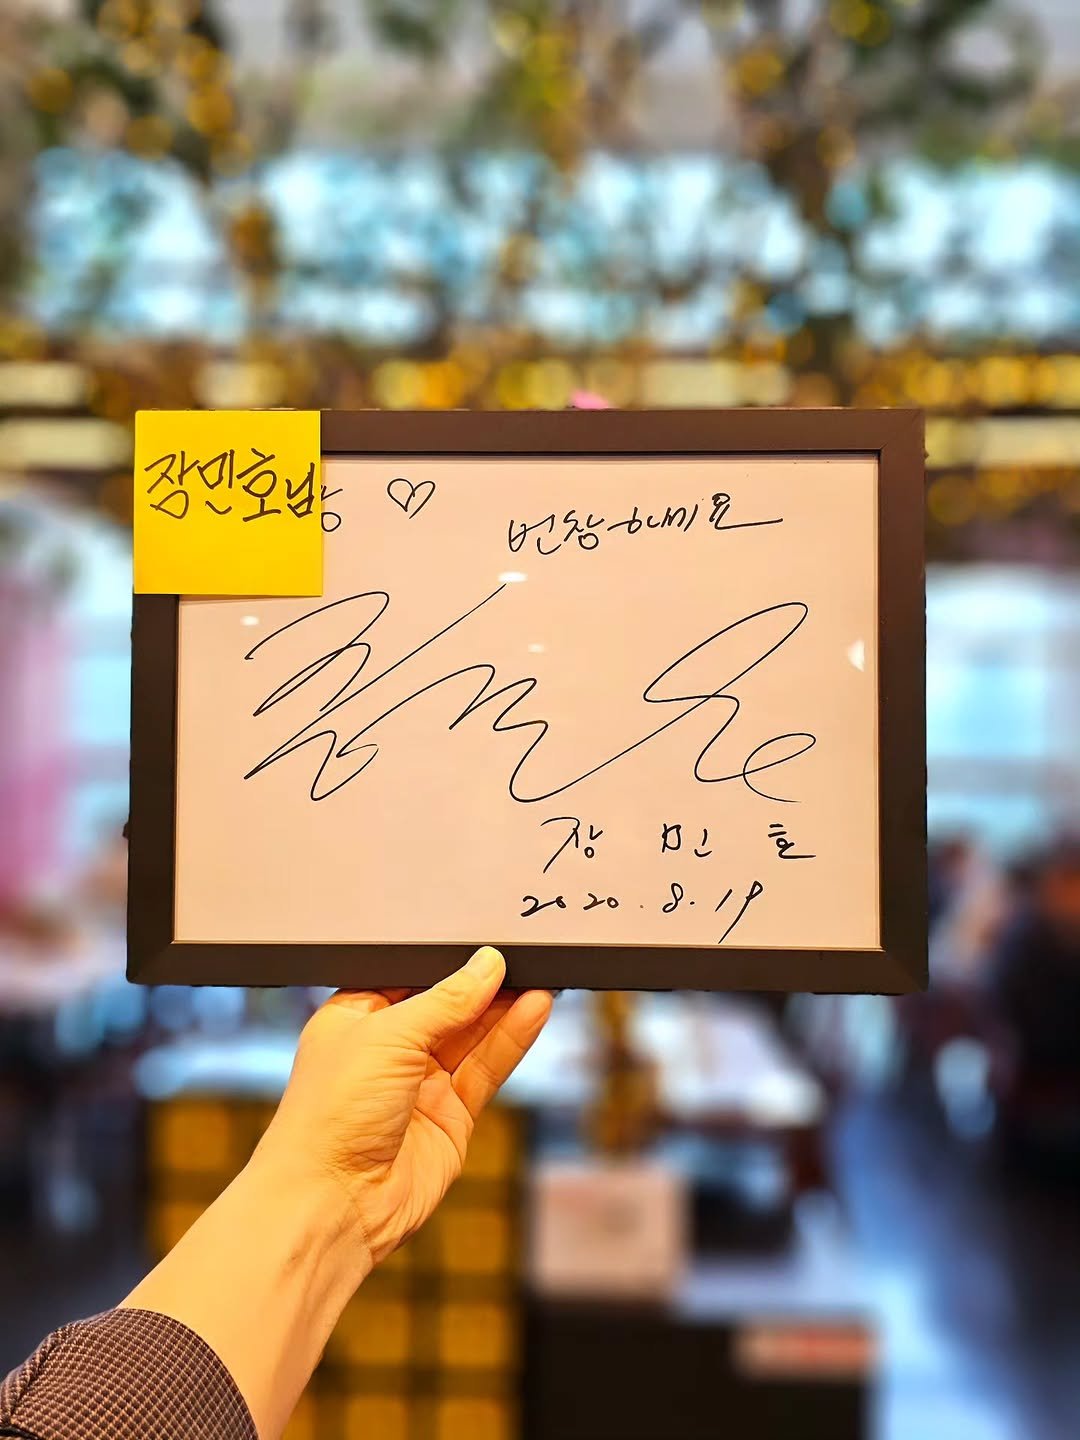 장민호님
♡
번창하세요
장민호
2020.8.19